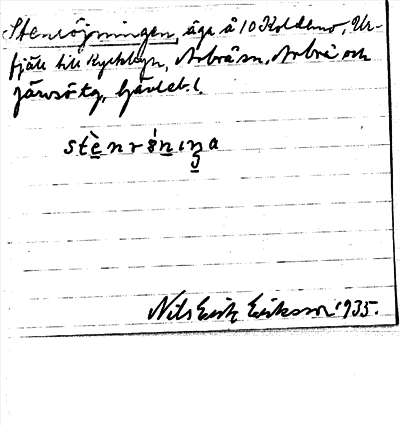 Stenröjningen, äga å 10 Koldemo, Ur-
fjäll till Kyrkbyn, Arbrå sn, Arbrå och
Järvsö tg, Gävleb. l.
stènrö́niŋa
Nils Erik Eriksson 1935.